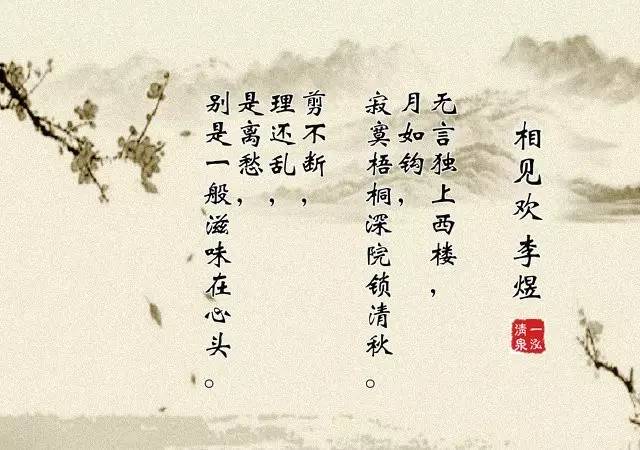 相见欢 李煜
一泓
清泉
无言独上西楼，
月如钩，
寂寞梧桐深院锁清秋。
剪不断，
理还乱，
是离愁，
别是一般滋味在心头。